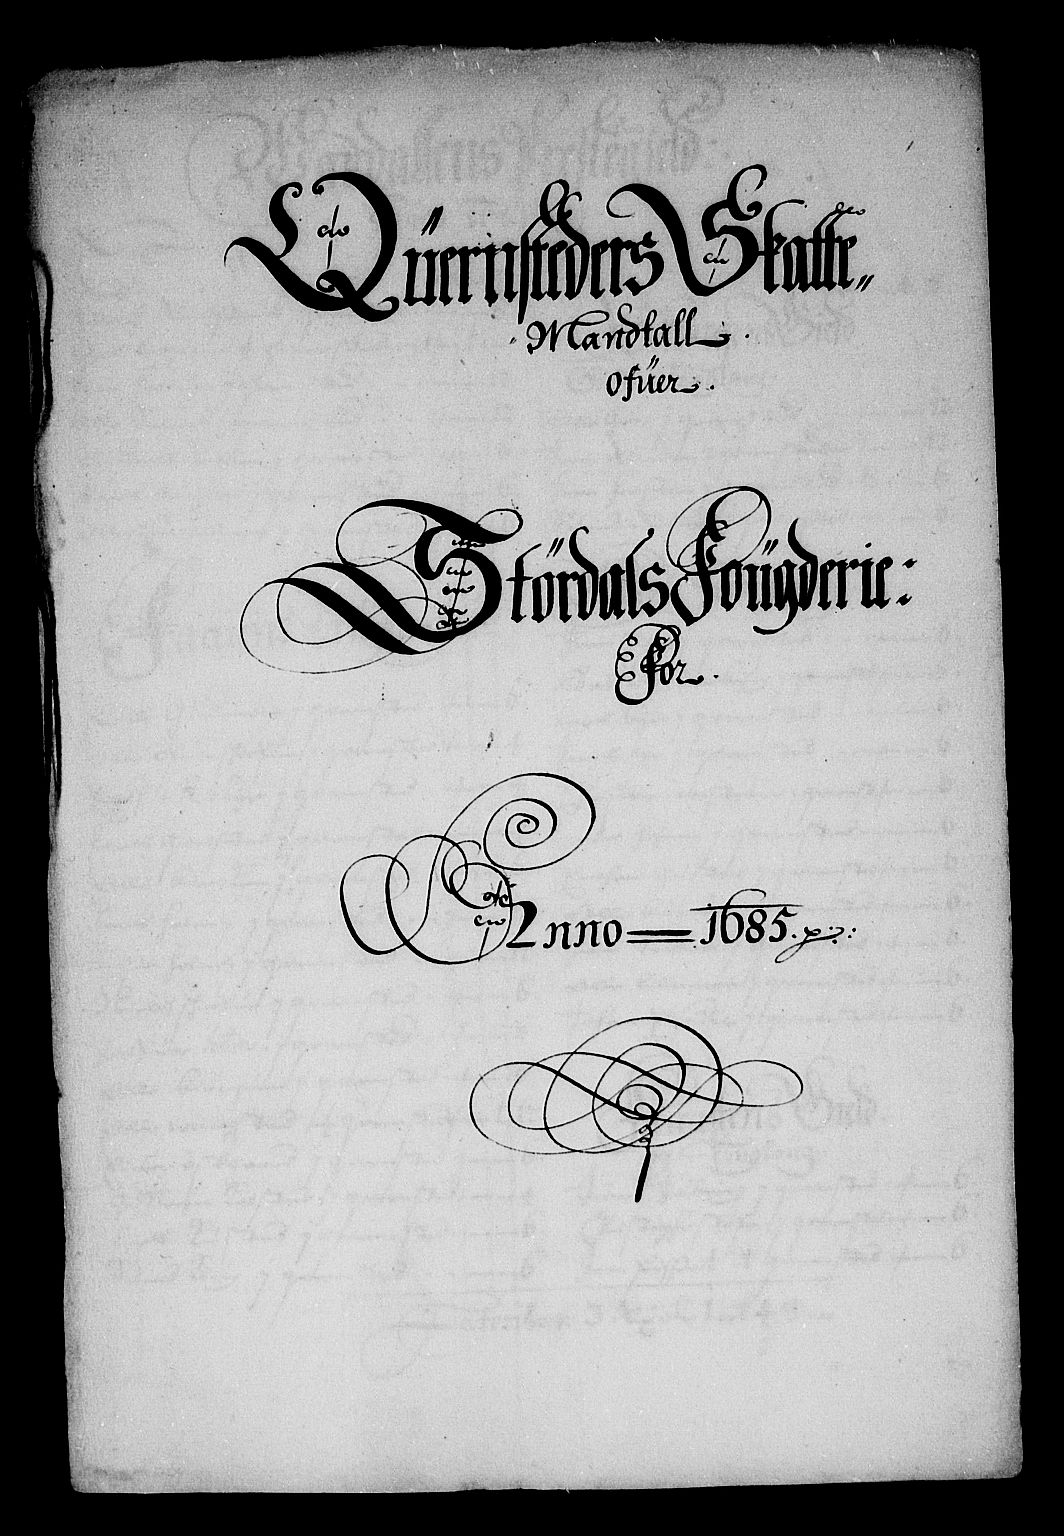 Qüernsteders Skatte„
Mandtall.
ofüer.
Stördals Foügderie:
For.
Anno = 1685.